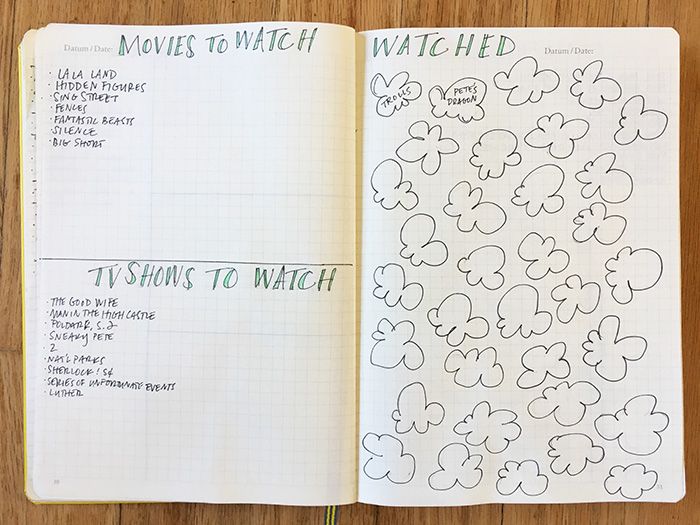 Datum / Date:
MOVIES TO WATCH
· LA LA LAND
· HIDDEN FIGURES
· SING STREET
· FENCES
· FANTASTIC BEASTS
· SILENCE
· BIG SHORT
TV SHOWS TO WATCH
· THE GOOD WIFE
· MAN IN THE HIGH CASTLE
· POLDARK, S. 2
· SNEAKY PETE
· 2
· NAT'L PARKS
· SHERLOCK! S4
· SERIES OF UNFORTUNATE EVENTS
· LUTHER
WATCHED
Datum / Date:
TROLLS
PETE'S
DRAGON